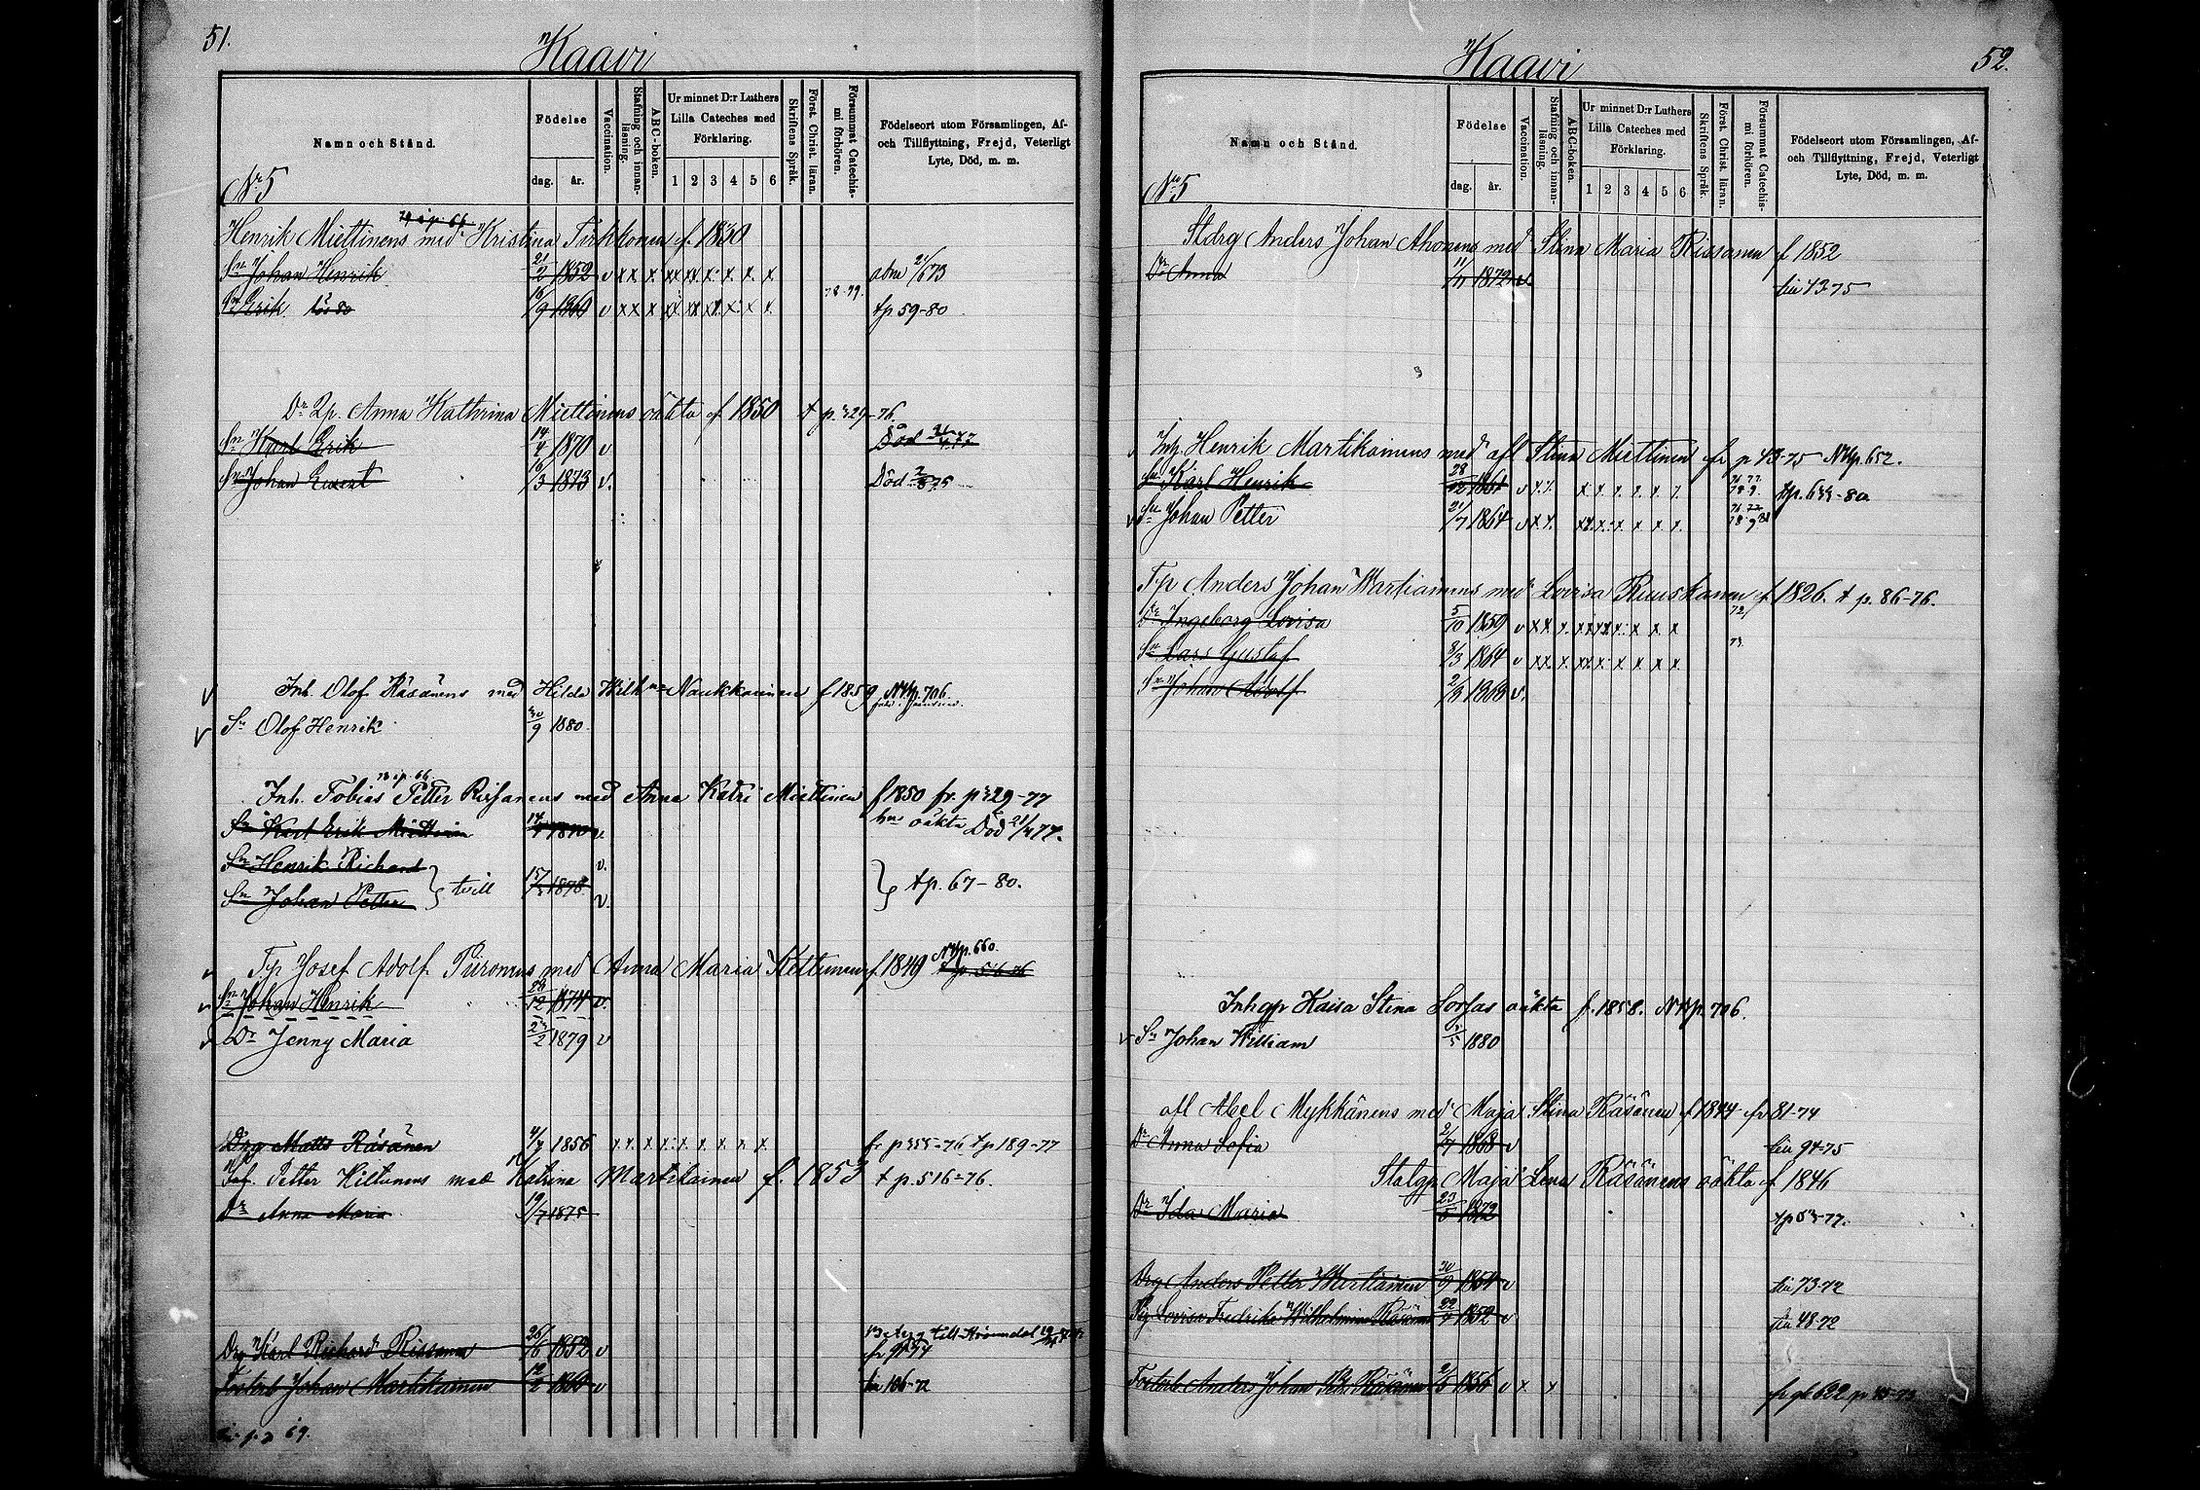 51.
Kaavi
Namn och Stånd.
Födelse
dag. år.
Vaccination.
Stafning och innanläsning.
ABC-boken.
Ur minnet D:r Luthers Lilla Cateches med Förklaring.
1 2 3 4 5 6
Skriftens Språk.
Först. Christ. läran.
Försummat Catechismi förhören.
Födelseort utom Församlingen, Af- och Tillflyttning, Frejd, Veterligt Lyte, Död, m. m.
No 5
Henrik Miettinens med Kristina Tirkkonen f. 1830
Sn Johan Henrik 21/2 1852 v x x x xx x x x x x 21/6 73
Sn Erik 16/9 1860 v x x x x xx xx x x x 78.79. tp 59-80
Dr Qp. Anna Kathrina Miettinens oäkta f. 1850 t p. 329-76
Sn Karl Erik 14/4 1870 v Död
Sn Johan Evert 16/3 1873 v. Död
Inh. Olof Räsänens med Hilda Naukkarinen f 1859 NKp. 706.
Sn Olof Henrik 1880.
Inh. Tobias Petter Rissanens med Anna Katri Miettinen f 1850 fr. p 329-77
Sn Karl Erik Miettinen 14/4 1870 v. oäkta Död 21/4 77.
Sn Henrik Richard v.
tvill 1878 tp. 67-80.
Sn Johan Petter v.
Tp Josef Adolf Piironens med Anna Maria Kettunen f. 1849 NKp. 660.
Sn Johan Henrik 28/12 1874 v.
Dr Jenny Maria 23/2 1879 v
Drg Matts Räsänen 4/7 1856 x x x x x x x x x fr p 355-76 tp 189-77
Petter Hiltunens med Katrina Martikainen f. 1853 t p. 516-76.
Dr Anna Maria 19/7 1875
Drg Karl Richard Rissanen 25/6 1852 v fr 91-74
Fosterb Johan Martikainen 12/2 1860 v
52.
Kaavi
Namn och Stånd.
Födelse
dag. år.
Vaccination.
Stafning och innanläsning.
ABC-boken.
Ur minnet D:r Luthers Lilla Cateches med Förklaring.
1 2 3 4 5 6
Skriftens Språk.
Först. Christ. läran.
Försummat Catechismi förhören.
Födelseort utom Församlingen, Af- och Tillflyttning, Frejd, Veterligt Lyte, Död, m. m.
No 5
Stdrg Anders Johan Ahonens med Stina Maria Rissanen f 1852
Dr Anna 11/11 1872 v 43-75
Inh. Henrik Martikainens med afl Stina Miettinen fr p 43-75 NKp. 652.
Sn Karl Henrik 28/12 1861 v x x x x x x x x 76 77 78 9. tp. 633-80
Sn Johan Petter 21/7 1864 v x x xx x x x x x
Tp Anders Johan Wartiainens med Lovisa Ruuskanen f 1826. t p. 86-76.
Dr Ingeborg Lovisa 5/10 1859 v x x x x x x x x x x 72
Sn Lars Gustaf 8/3 1864 v x x x x x x x x x 73
Sn Johan Adolf 1868 v.
Inhqp Kaisa Stina Sorsas oäkta f. 1858. NKp. 706.
Sn Johan William 1880
afl Abel Mykkänens med Maja Stina Räsänen f 1844 fr 81-74
Dr Anna Sofia 1868 v 94-75
Statqp Maja Lena Räsänens oäkta f 1846
Dr Ida Maria 23/5 1872
Drg Anders Petter Wartiainen 1854 v 73-72
Pig Lovisa Fredrika Wilhelmina Räsänen 22/4 1852 v 48-72
Fosterb Anders Johan Räsänen 1856 v x x